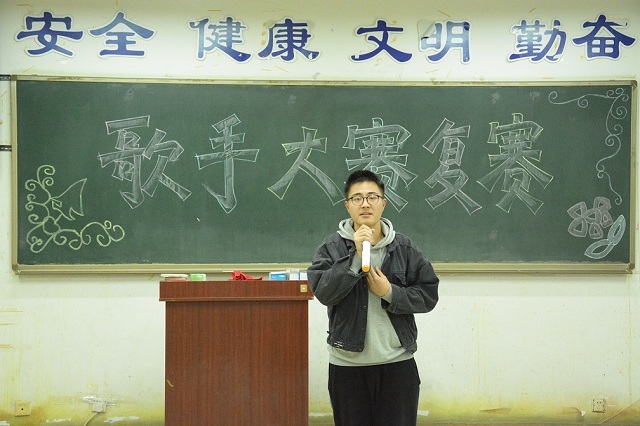 安全 健康 文明 勤奋
歌手大赛复赛